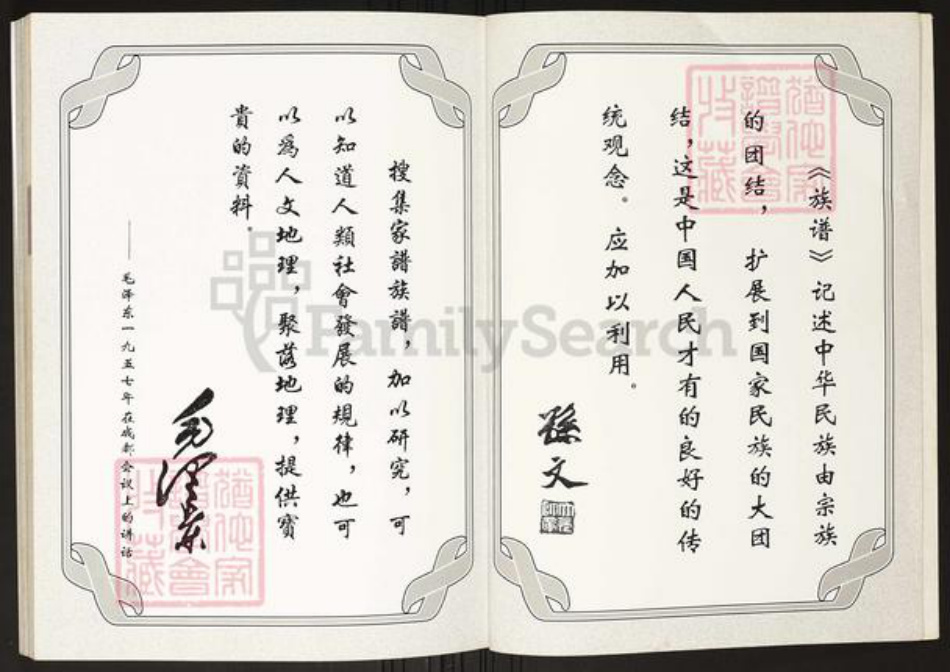 《族谱》记述中华民族由宗族
的团结，扩展到国家民族的大团
结，这是中国人民才有的良好的传
统观念。应加以利用。
孫文
搜集家譜族譜，加以研究，可
以知道人類社會發展的規律，也可
以爲人文地理，聚落地理，提供寶
貴的資料。
——毛泽东一九五七年在成都会议上的讲话
毛澤東
FamilySearch